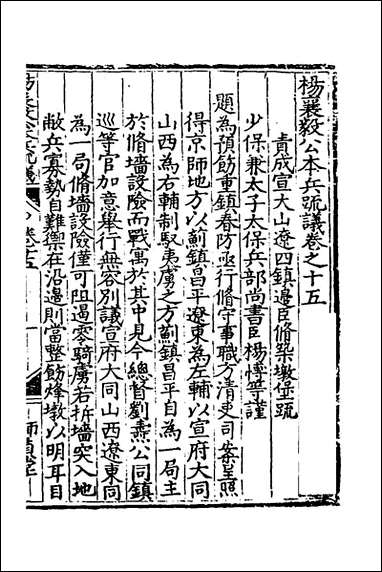 楊襄毅公本兵疏議卷之十五
責成宣大山遼四鎮邊臣脩築墩堡疏
少保兼太子太保兵部尚書臣楊博等謹
題為預飭重鎮春防亟行脩守事職方清吏司案呈照
得京師地方以薊鎮昌平遼東為左輔以宣府大同
山西為右輔制馭夷虜之方薊鎮昌平自為一局主
於脩墻設險而戰寓於其中見今總督劉燾公同鎮
巡等官加意舉行無容別議宣府大同山西遼東同
為一局脩墻設險僅可阻遏零騎虜若拆墻突入地
敵兵寡勢自難禦在沿邊則當整飭烽墩以明耳目